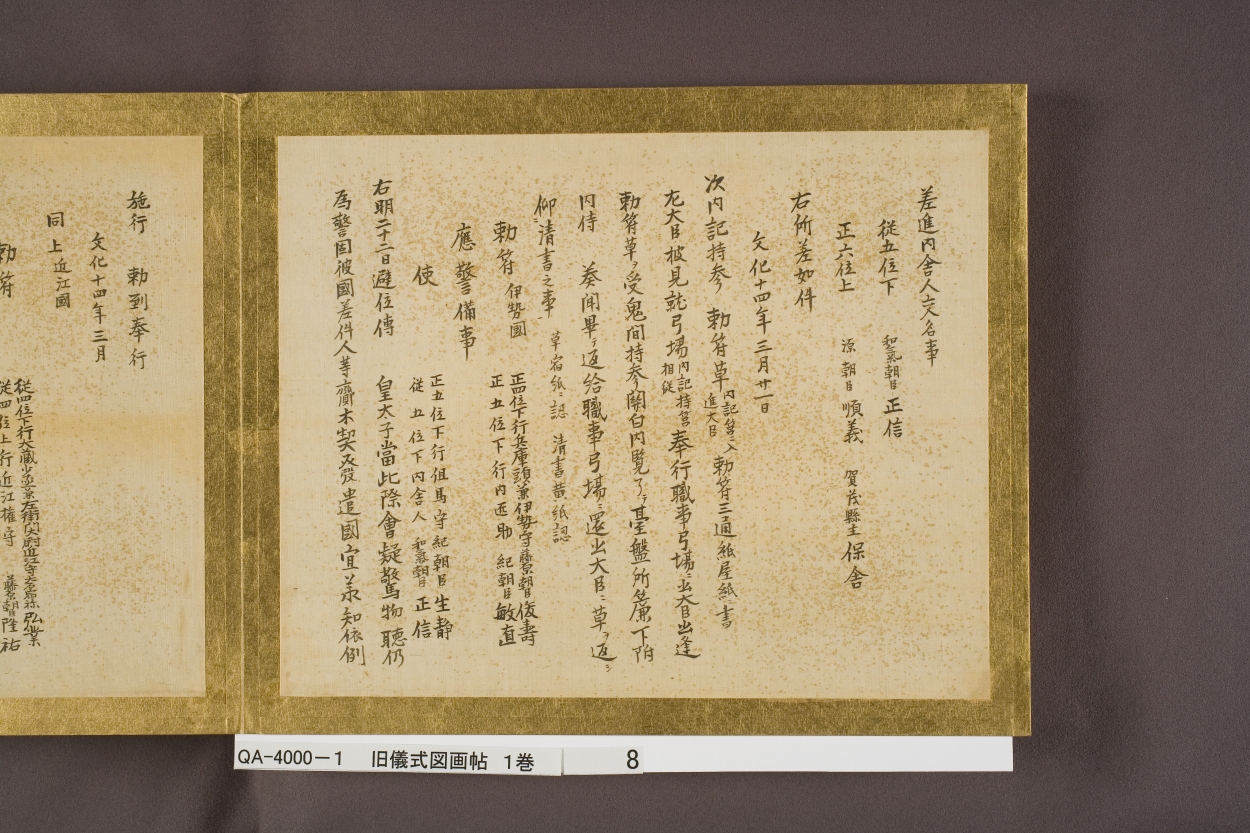 差進内舎人交名事
従五位下 和氣朝臣正信
正六位上 源朝臣順義 賀茂縣主保舎
右所差如件
文化十四年三月廿一日
次内記持参 勅符草内記筥ニ入進大臣勅符三通紙屋紙書
左大臣披見就弓場内記持筥相従奉行職事弓場ニ出大臣出逢
勅符草ヲ受鬼間持参関白内覧了テ臺盤所簾下附
内侍 奏聞畢テ返給職事弓場ニ還出大臣ニ草ヲ返シ
仰ニ清書之事 草宿紙ニ認 清書黄紙認
勅符 伊勢國 正四位下行兵庫頭兼伊勢守藤原朝臣俊壽
正五位下行内匠助 紀朝臣敏直
應警備事
使 正五位下行但馬守紀朝臣生静
従五位下内舎人 和氣朝臣正信
右明二十二日避位傳 皇太子當此際會疑驚物聴仍
為警固彼國差件人等齎木契及發遣國宜承知依例
施行 勅到奉行
文化十四年三月
同上近江國
勅符 従四位下行大蔵 弘業
従四位上行近江権守 藤原朝臣隆祐
QA-4000-1 旧儀式図画帖 1巻 8